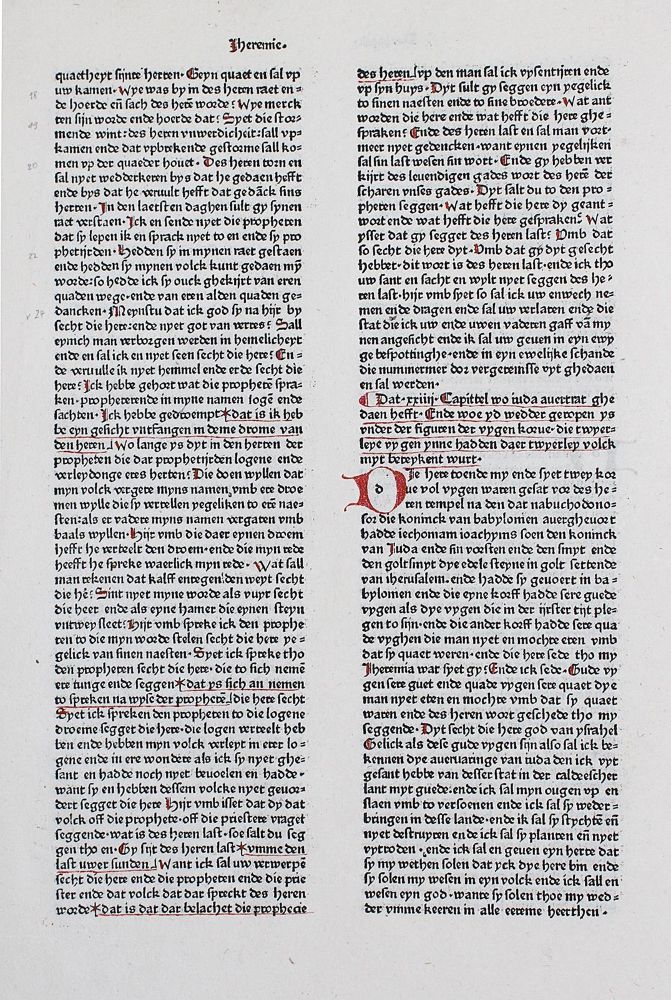 Jheremie.
quaetheyt sijnre herten. Geyn quaet en sal vp
uw kamen. Wye was by in des heren raet en=
de hoerde eñ sach des herē worde? Wye merck
ten sijn worde ende hoerde dat? Syet die stor=
mende wint: des heren vnwerdicheit: sall vp=
kamen ende dat vpbrekende gestorme sall ko=
men vp der quaeder houet. Des heren torn en
sal nyet wedderkeren bys dat he gedaen hefft
ende bys dat he veruult hefft dat gedāck sins
herten. In den laetsten daghen sult gy synen
raet verstaen. Ick en sende nyet die propheten
dat sy lepen ik en sprack nyet to en ende sy pro
phetijrden. Hedden sy in mynen raet gestaen
ende hedden sy mynen volck kunt gedaen mȳ
worde: so hedde ick sy ouck ghekijrt van eren
quaden wege. ende van eren alden quaden ge=
dancken. Meynstu dat ick god sy na hijr by
secht die here: ende nyet got van verres? Sall
eynich man verborgen werden in hemelicheyt
ende en sal ick en nyet seen secht die here? En=
de veruulle ik nyet hemmel ende erde secht die
here? Ick hebbe gehort wat die prophetē spra=
ken. propheterende in myne namen logē ende
sachten. Ick hebbe gedroempt*dat is ik heb
be eyn gesicht vntfangen in deme drome van
den heren.Wo lange ys dyt in den herten der
propheten die dar prophetijrden logene ende
verleydonge eres herten? Die doen wyllen dat
myn volck vergete myns namen. vmb ere droe
men wylle die sy vertellen yegeliken to erē nae=
sten: als er vadere myns namen vergaten vmb
baals wyllen. Hijr vmb die daer eynen droem
hefft he verteelt den droem. ende die myn rede
heefft he spreke waerlick myn rede. Wat sall
man rekenen dat kalff entegen den weyt secht
die hē? Sint nyet myne worde als vuyr secht
die heer ende als eyne hamer die eynen steyn
vntwey sleet? Hijr vmb spreke ick den prophe
ten to die myn worde stelen secht die here ye=
gelick van sinen naesten. Syet ick spreke tho
den propheten secht die here. die to sich nemē
ere tunge ende seggen*dat ys sich an nemen
to spreken na wyse der prophetē.die here secht
Syet ick spreken den propheten to die logene
droeme segget die here. die logen verteelt heb
ben ende hebben myn volck verleyt in erer lo=
gene ende in ere wondere als ick sy nyet ghe=
sant en hadde noch nyet beuolen en hadde.
want sy en hebben dessem volcke nyet geuor=
dert segget die here Hijr vmb isset dat dy dat
volck off die prophete. off die priestere vraget
seggende. wat is des heren last. soe salt du seg
gen tho en. Gy sijt des heren last*vmme den
last uwer sunden.Want ick sal uw verwerpē
secht die here ende die propheten ende die prie
ster ende dat volck dat dar spreckt des heren
worde*dat is dat dar belachet die prophecie
des heren.vp den man sal ick vysentijren ende
vp syn huys. Dyt sult gy seggen eyn yegelick
to sinen naesten ende to sine broedere. Wat ant
worden die here ende wat hefft die here ghe=
spraken? Ende des heren last en sal man vort=
meer nyet gedencken. want eynen yegelijken
sal sin last wesen sin wort. Ende gy hebben ver
kijrt des leuendigen gades wort des herē der
scharen vnses gades. Dyt salt du to den pro=
pheten seggen. Wat hefft die here dy geant=
wort ende wat hefft die here gespraken? Wat
ysset dat gy segget des heren last? Vmb dat
so secht die here dyt. Vmb dat gy dyt gesecht
hebbet. dit wort is des heren last. ende ick tho
uw sant en sacht en wylt nyet seggen des he=
ren last. hijr vmb syet so sal ick uw enwech ne=
men ende dragen ende sal uw verlaten ende die
stat die ick uw ende uwen vaderen gaff vā my
nen angesicht ende ik sal uw geuen in eyn ewy
ge bespottinghe. ende in eyn ewelijke schande
die nummermeer doz vergetenisse vyt ghedaen
en sal werden.
Dat .xxiiij. Capittel wo iuda auertrat ghe
daen hefft. Ende woe yd wedder geropen ys
vnder der figuren der vygen korue. die twyer=
leye vygen ynne hadden daer twyerley volck
myt beteykent wurt.
Die here toende my ende syet twey kor
ue vol vygen waren gesat vor des he=
ren tempel na den dat nabuchodono=
sor die koninck van babylonien auerghevoert
hadde iechomam ioachyms soen den koninck
van Iuda ende sin vorsten ende den smyt ende
den goltsmyt dye edele steyne in golt settende
van iherusalem. ende hadde sy geuoert in ba=
bylomen ende die eyne korff hadde sere guede
vygen als dye vygen die in der ijrster tijt ple=
gen to sijn. ende die ander korff hadde sere qua
de vyghen die man nyet en mochte eten vmb
dat sy quaet weren. ende die here sede tho my
Iheremia wat syet gy? Ende ick sede. Gude vy
gen sere guet ende quade vygen sere quaet dye
man nyet eten en mochte vmb dat sy quaet
waren ende des heren wort geschede tho my
seggende. Dyt secht die here god van ysrahel
Gelick als dese gude vygen sijn also sal ick be=
kennen dye auervaringe van iuda den ick vyt
gesant hebbe van desser stat in der caldeescher
lant myt guede: ende ick sal myn ougen vp en
slaen vmb to versoenen ende ick sal sy weder=
bringen in desse lande. ende ik sal sy stychtē eñ
nyet destruyren ende ick sal sy planten eñ nyet
vytroden. ende ick sal en geuen eyn herte dat
sy my wethen solen dat yck dye here bin ende
sy solen my wesen in eyn volck ende ick sall en
wesen eyn god. wante sy solen thoe my wed=
der ymme keeren in alle eereme heerthen.